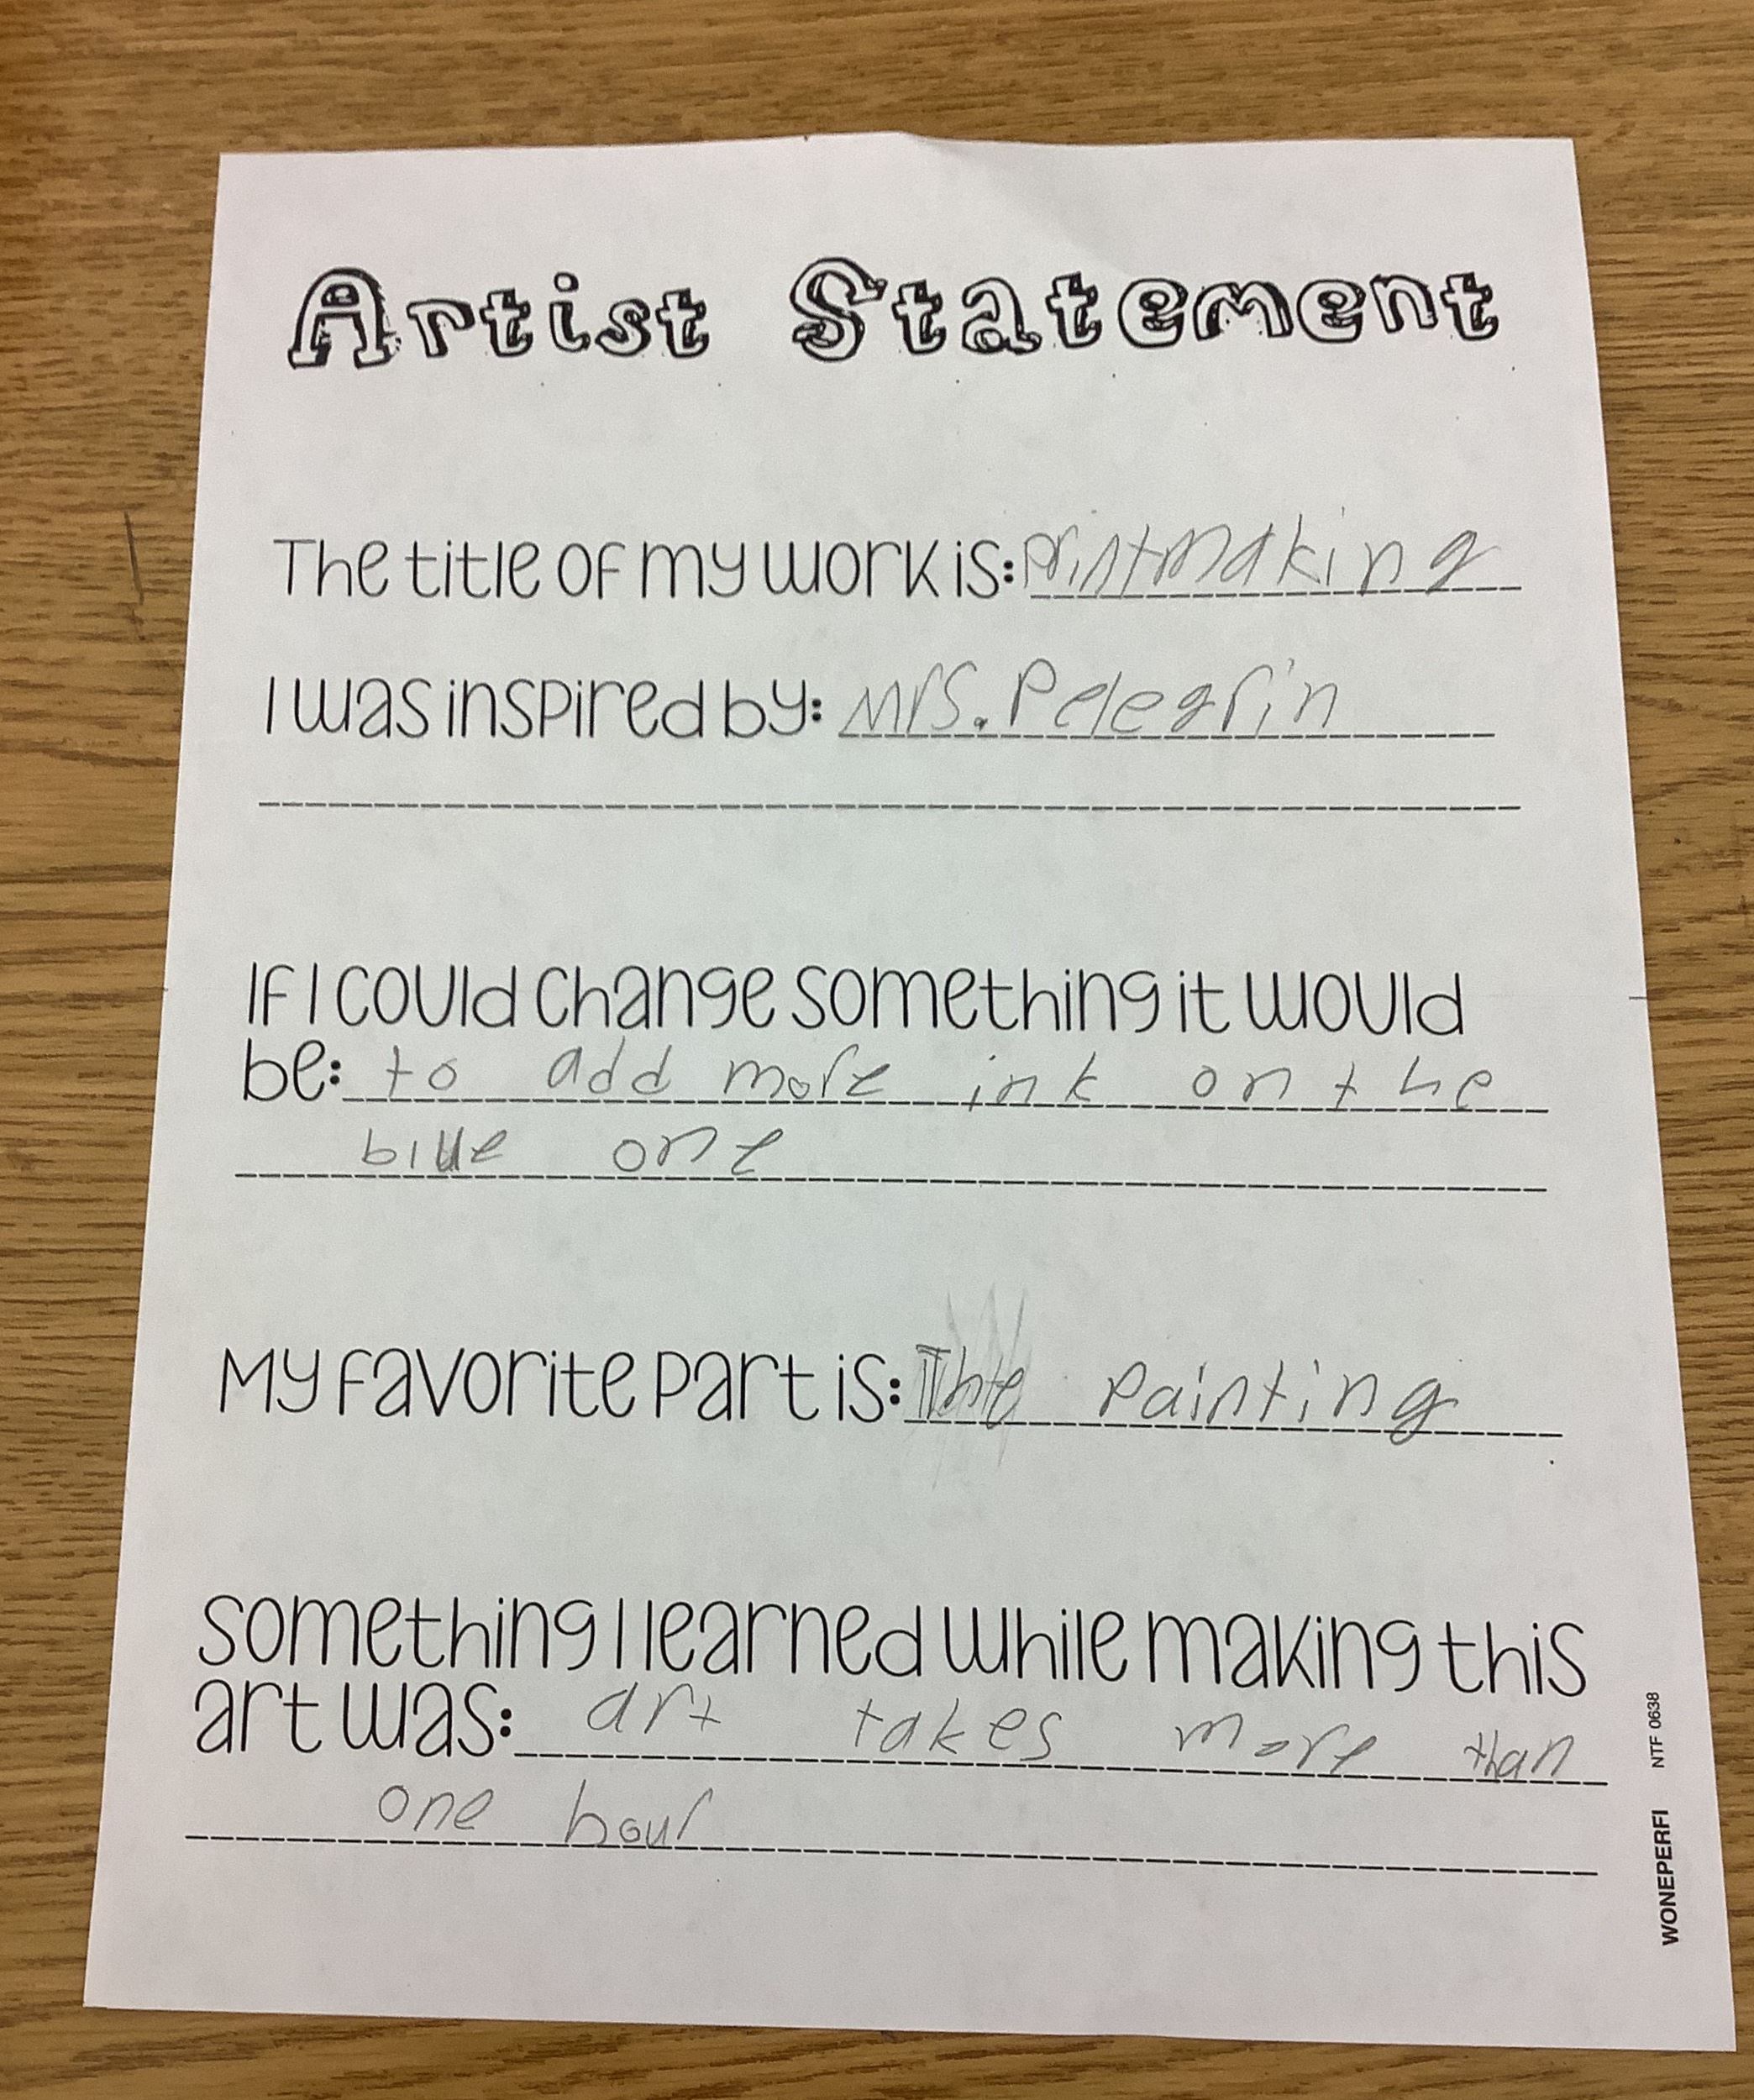 Artist Statement
The title of my work is: Printmaking
I was inspired by: Mrs. Pelegrin
If I could change something it would
be: to add more ink on the
blue one
My favorite part is: The Painting
Something I learned while making this
art was: art takes more than
one hour
WONEPERFI NTF 0638